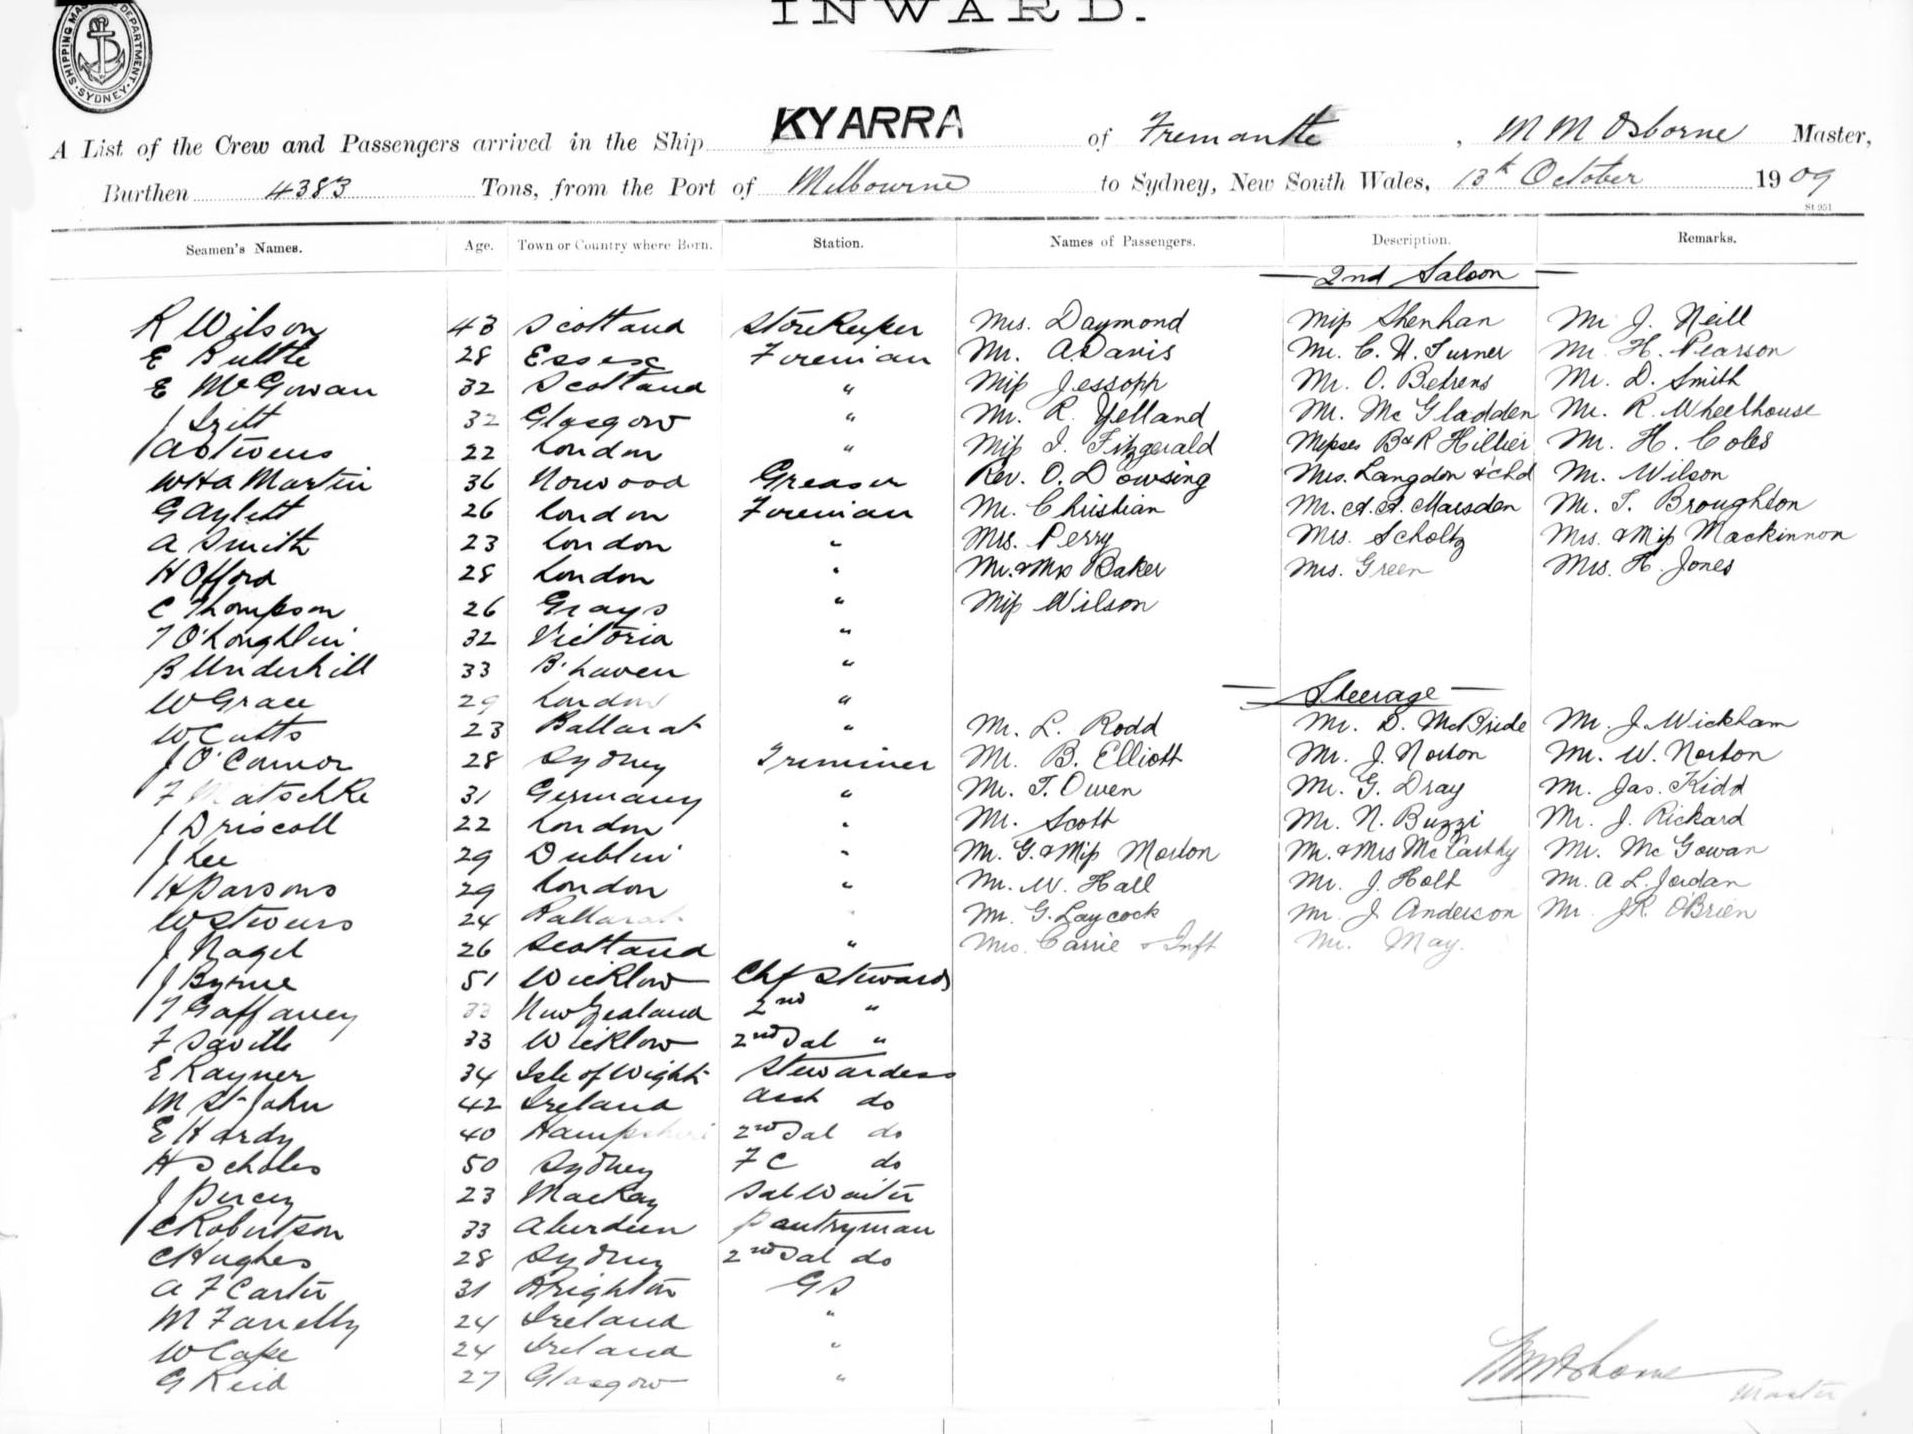 INWARD.
SHIPPING MASTER'S DEPARTMENT SYDNEY
A List of the Crew and Passengers arrived in the Ship KYARRA of Fremantle, M M Osborne Master,
Burthen 4383 Tons, from the Port of Melbourne to Sydney, New South Wales, 13th October 1909
St 951
Seamen's Names. Age. Town or Country where Born. Station. Names of Passengers. Description. Remarks.
2nd Saloon
R Wilson 43 Scotland Storekeeper Mrs. Daymond Miss Shenhan Mr J. Neill
E Buttle 28 Essex Fireman Mr. A. Davis Mr. C. H. Turner Mr. H. Pearson
E McGowan 32 Scotland " Miss Jessopp Mr. O. Behrens Mr. D. Smith
J 32 Glasgow " Mr. R. Yelland Mr. McGladden Mr. R. Wheelhouse
A Stivens 22 London " Miss I. Fitzgerald Misses B & R Hillier Mr. H. Coles
W H A Martin 36 Norwood Greaser Rev. O. Dowsing Mrs. Langdon & chd Mr. Wilson
G Aylett 26 London Fireman Mr. Christian Mr. A. A. Marsden Mr. T. Broughton
A Smith 23 London " Mrs. Perry Mrs. Scholtz Mrs. & Miss Mackinnon
H Offord 28 London " Mr. & Mrs Baker Mrs. Green Mrs. H. Jones
C Thompson 26 Grays " Miss Wilson
T O'Loughlin 32 Victoria "
B Underhill 33 B'haven "
W Grace 29 London "
Steerage
W Cutts 23 Ballarat " Mr. L. Rodd Mr. D. McBride Mr. J. Wickham
J O'Connor 28 Sydney Trimmer Mr. B. Elliott Mr. J. Norton Mr. W. Norton
F Matschke 31 Germany " Mr. T. Owen Mr. G. Dray Mr. Jas. Kidd
J Driscoll 22 London " Mr. Scott Mr. N. Buzzi Mr. J. Rickard
J Lee 29 Dublin " Mr. G. & Miss Morton Mr. & Mrs McCarthy Mr. McGowan
H Parsons 29 London " Mr. W. Hall Mr. J. Holt Mr. A L. Jordan
W Stivens 24 Ballarat " Mr. G. Laycock Mr. J. Anderson Mr J.R. O'Brien
J Nagel 26 Scotland " Mrs. Carrie & Inft Mr. May.
J Byrne 51 Wicklow Chf Steward
T Gaffaney 33 New Zealand 2nd "
F Saville 33 Wicklow 2nd Sal "
E Rayner 34 Isle of Wight Stewardess
M St John 42 Ireland Asst do
E Hardy 40 Hampshire 2nd Sal do
H Scholes 50 Sydney F C do
J Percey 23 Mackay Sal Waiter
C Robertson 33 Aberdeen Pantryman
C Hughes 28 Sydney 2nd Sal do
A F Carter 31 Brighton G S
M Farrelly 24 Ireland "
W Cape 24 Ireland "
G Reid 27 Glasgow "
M M Osborne
Master